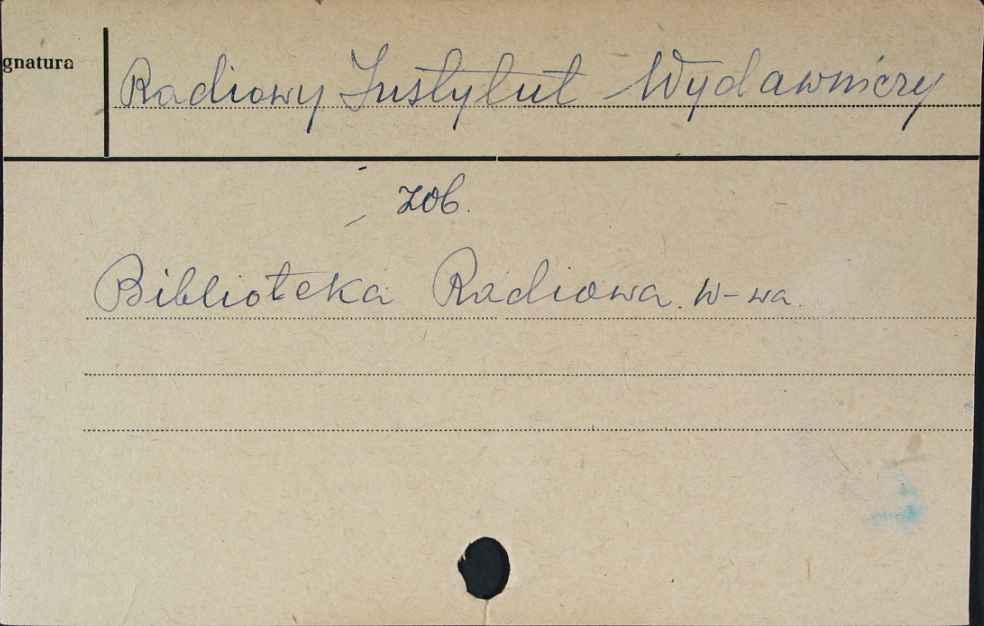 gnatura
Radiowy Instytut Wydawniczy
zob.
Biblioteka Radiowa. W-wa.